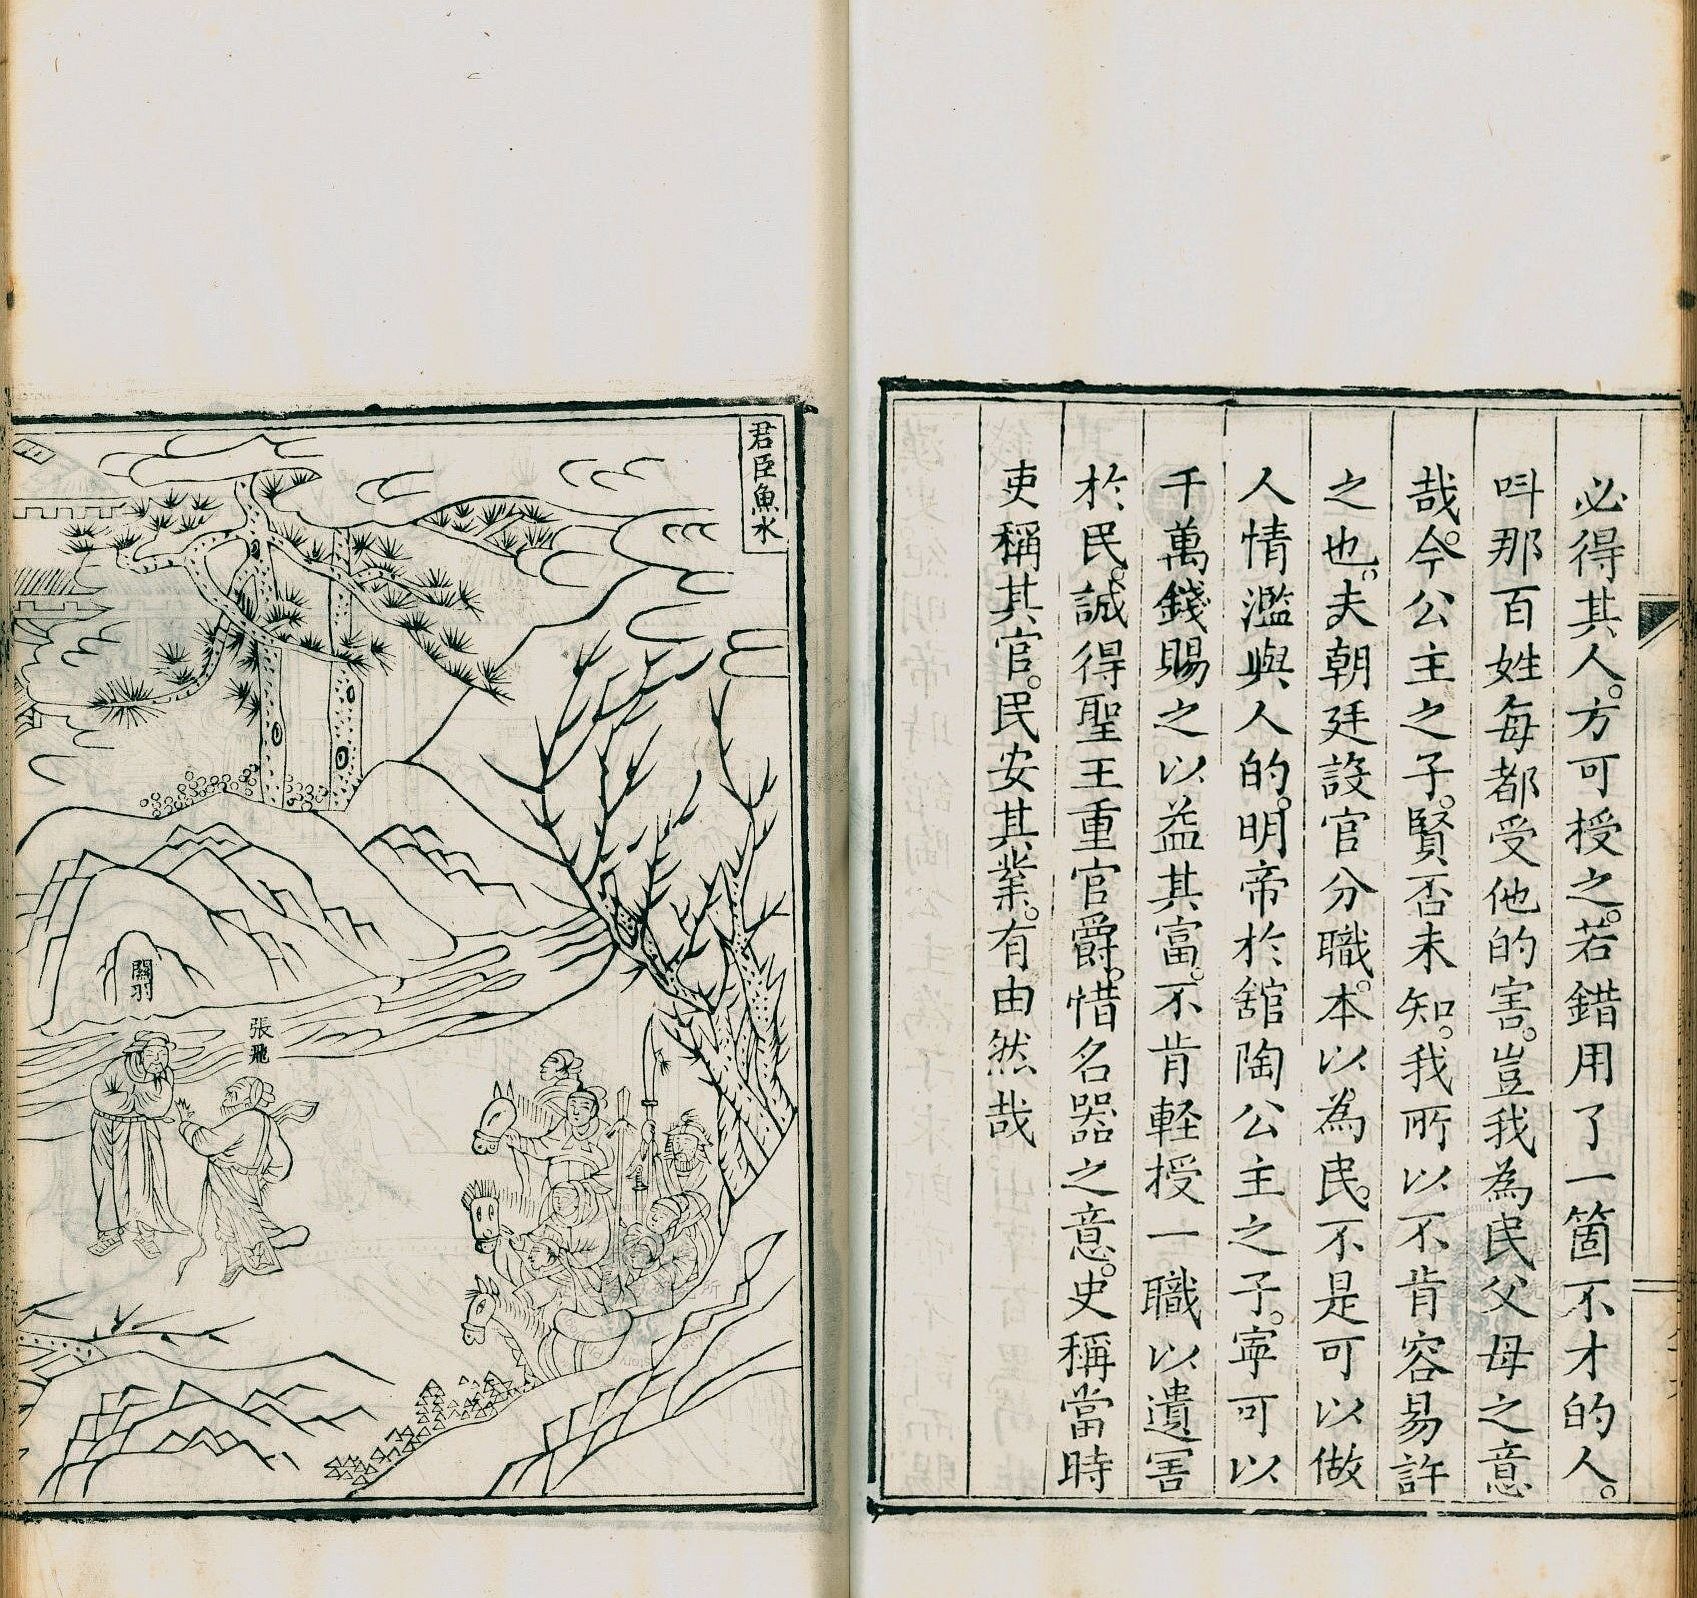 必得其人。方可授之。若錯用了一箇不才的人。
呌那百姓每都受他的害。豈我為民父母之意
哉。今公主之子。賢否未知。我所以不肯容易許
之也。夫朝廷設官分職。本以為民。不是可以做
人情濫與人的。明帝於舘陶公主之子。寧可以
千萬錢賜之以益其富。不肯軽授一職以遺害
於民。誠得聖王重官爵。惜名器之意。史稱當時
吏稱其官。民安其業。有由然哉
君臣魚水
關羽
張飛